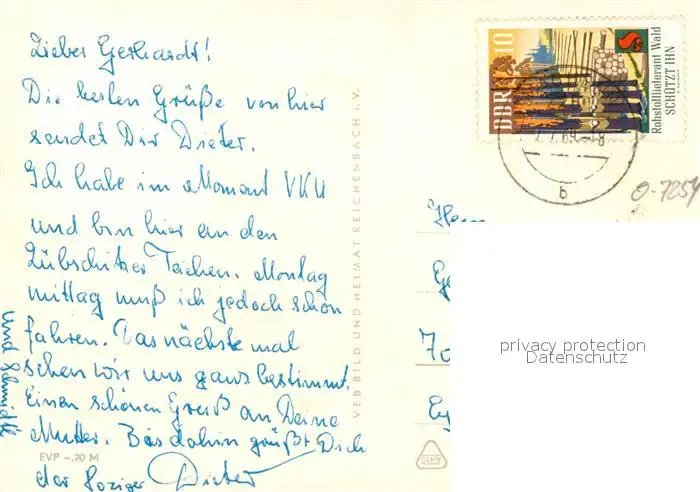 Lieber Gerhardt!
Die besten Grüße von hier
sendet Dir Dieter.
Ich habe im Moment VKU
und bin hier an den
Lübschützer Teichen. Montag
mittag muß ich jedoch schon
fahren. Das nächste mal
sehen wir uns ganz bestimmt.
Einen schönen Gruß an Deine
Mutter. Bis dahin grüßt Dich
der Dieter
und
EVP -,20 M
VEB BILD UND HEIMAT REICHENBACH i. V.
DDR 10
Rohstofflieferant Wald
SCHÜTZT IHN
b
Herrn
70
privacy protection
Datenschutz